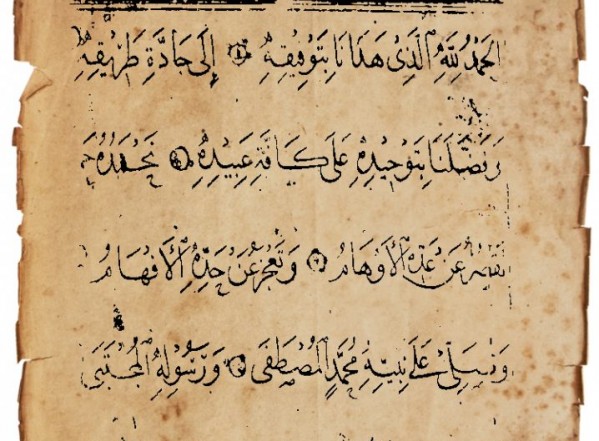 الحَمْدُ لِلّٰهِ الَّذِي هَدَانَا بِتَوْفِيقِهِ إِلَى جَادَّةِ طَرِيقِهِ
بِتَوْحِيدِهِ عَلَى كَافَّةِ عَبِيدِهِ
عَنْ عَدِّهِ الْأَوْهَامُ وَتَعْجِزُ عَنْ حَدِّهِ الْأَفْهَامُ
عَلَى نَبِيِّهِ مُحَمَّدٍ الْمُصْطَفَى وَرَسُولِهِ الْمُجْتَبَى